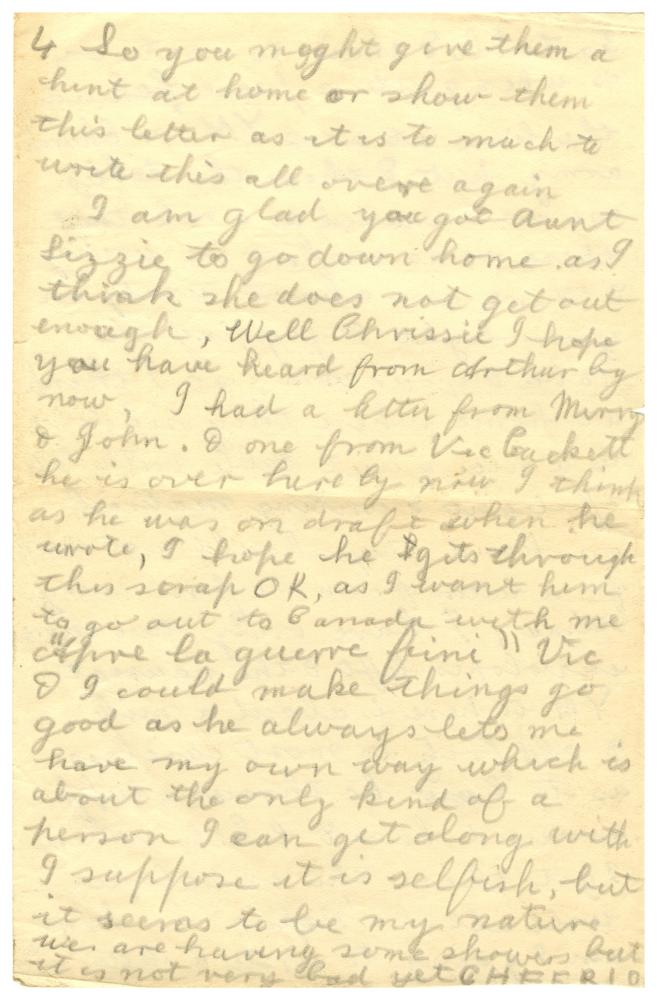 4 So you moght give them a
hint at home or show them
this letter as it is to much to
write this all overe again
I am glad you got Aunt
Lizzie to go down home as I
think she does not get out
enough, Well Chrissie I hope
you have heard from Arthur by
now, I had a letter from Mirry
& John. & one from Vic Cackett
he is over here by now I think
as he was on draft when he
wrote, I hope he gets through
this scrap OK, as I want him
to go out to Canada with me
"Apre la guerre fini" Vic
& I could make things go
good as he always lets me
have my own way which is
about the only kind of a
person I can get along with
I suppose it is selfish, but
it seems to be my nature
we are having some showers but
it is not very bad yet CHEERIO